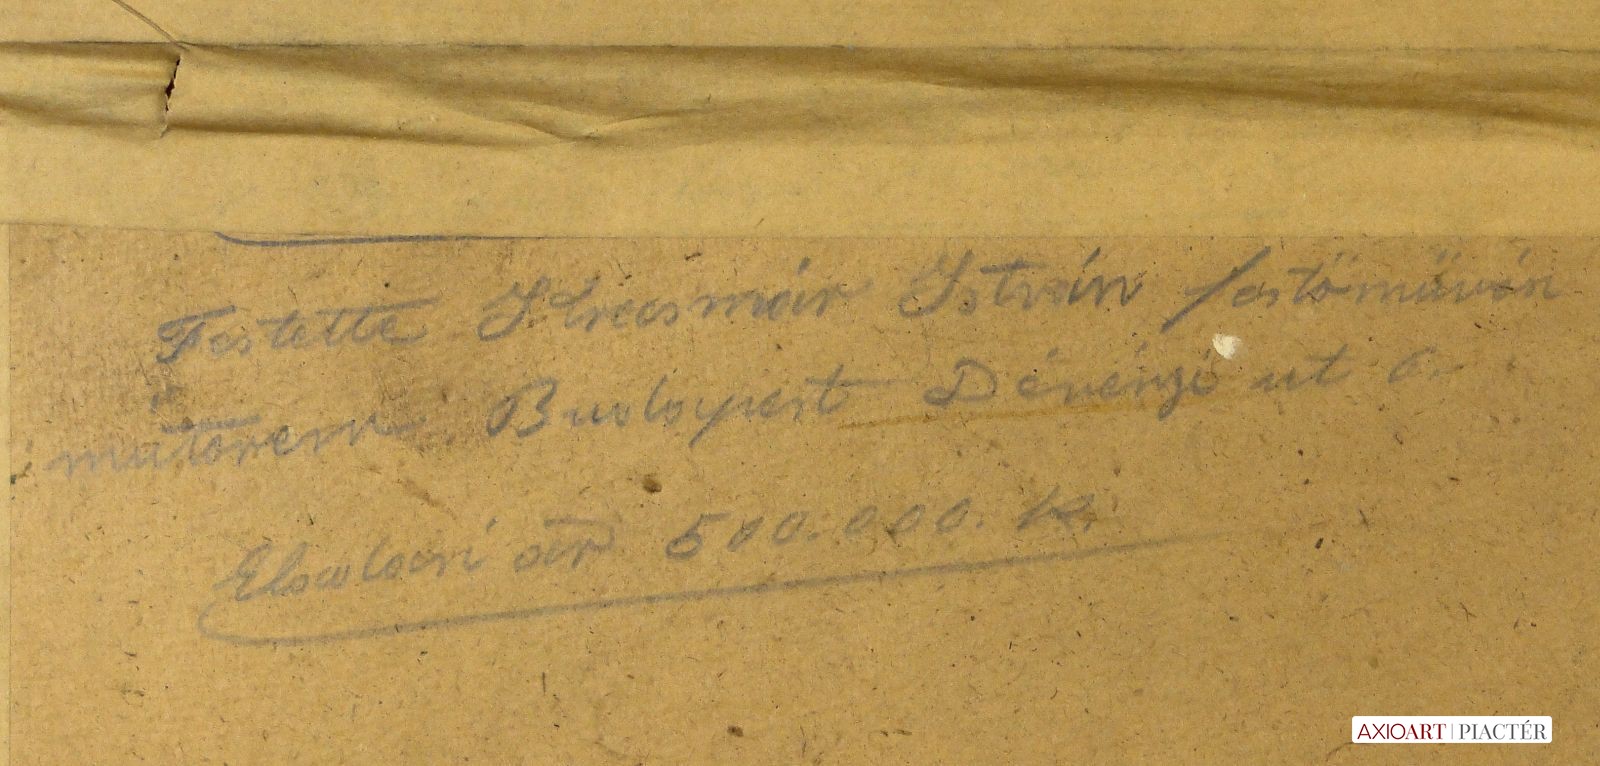 Festette Krecsmár István festőművész
műterem. Budapest Dévényi ut 6.
Eladási ár 500.000. K.
AXIOART | PIACTÉR